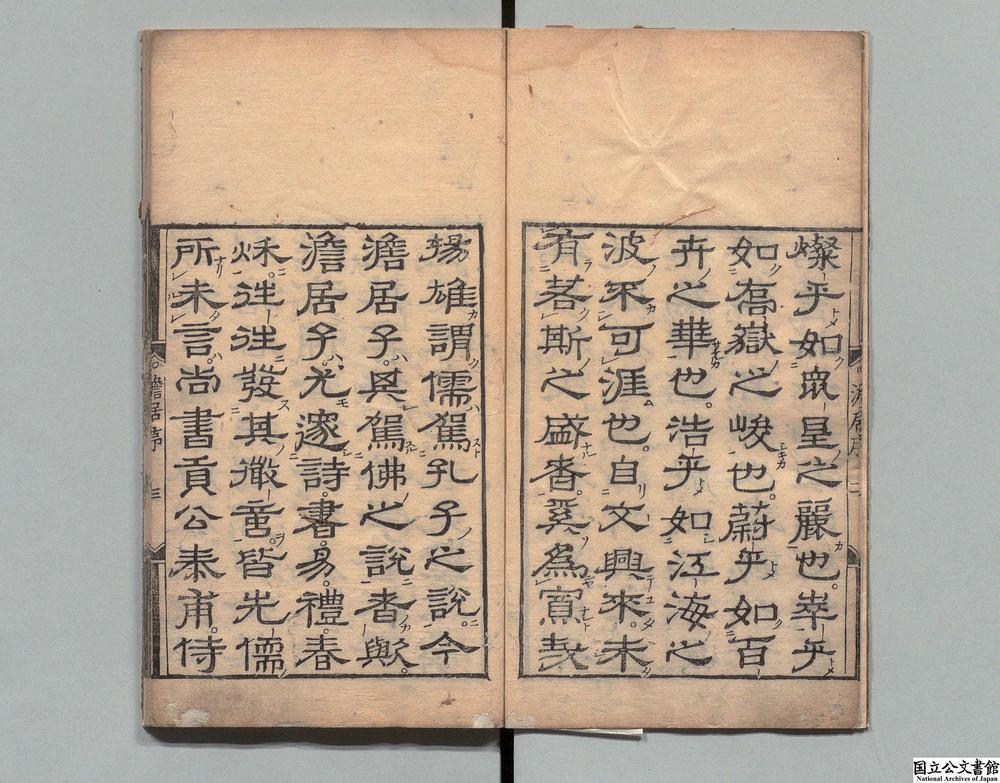 燦乎如衆星之麗也。崒乎
如喬嶽之峻也。蔚乎如百
卉之華也。浩乎如江海之
波不可涯也。自文興來。未
有若斯之盛者。奚爲
澹居序 二
揚雄謂儒駕孔子之說。今
澹居子。其駕佛之說者歟。
澹居子尤邃詩。書。易。禮。春
秌。徃徃發其微意。皆先儒
所未言。尚書貢公泰甫。侍
澹居序 三
国立公文書館
National Archives of Japan